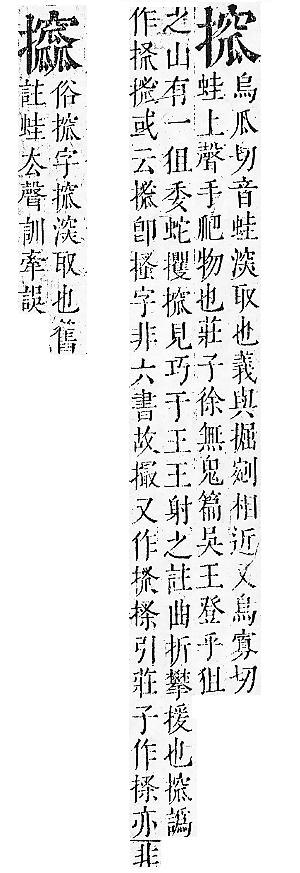 搲
烏瓜切音蛙深取也義與掘剜相近又烏寡切
蛙上聲手爬物也莊子徐無鬼篇吳王登乎狙
之山有一狙委蛇攫搲見巧于王王射之註曲折攀援也搲譌
作或云卽搔字非六書故撮又作引莊子作亦非
俗搲字搲深取也舊
註蛙去聲訓牽誤